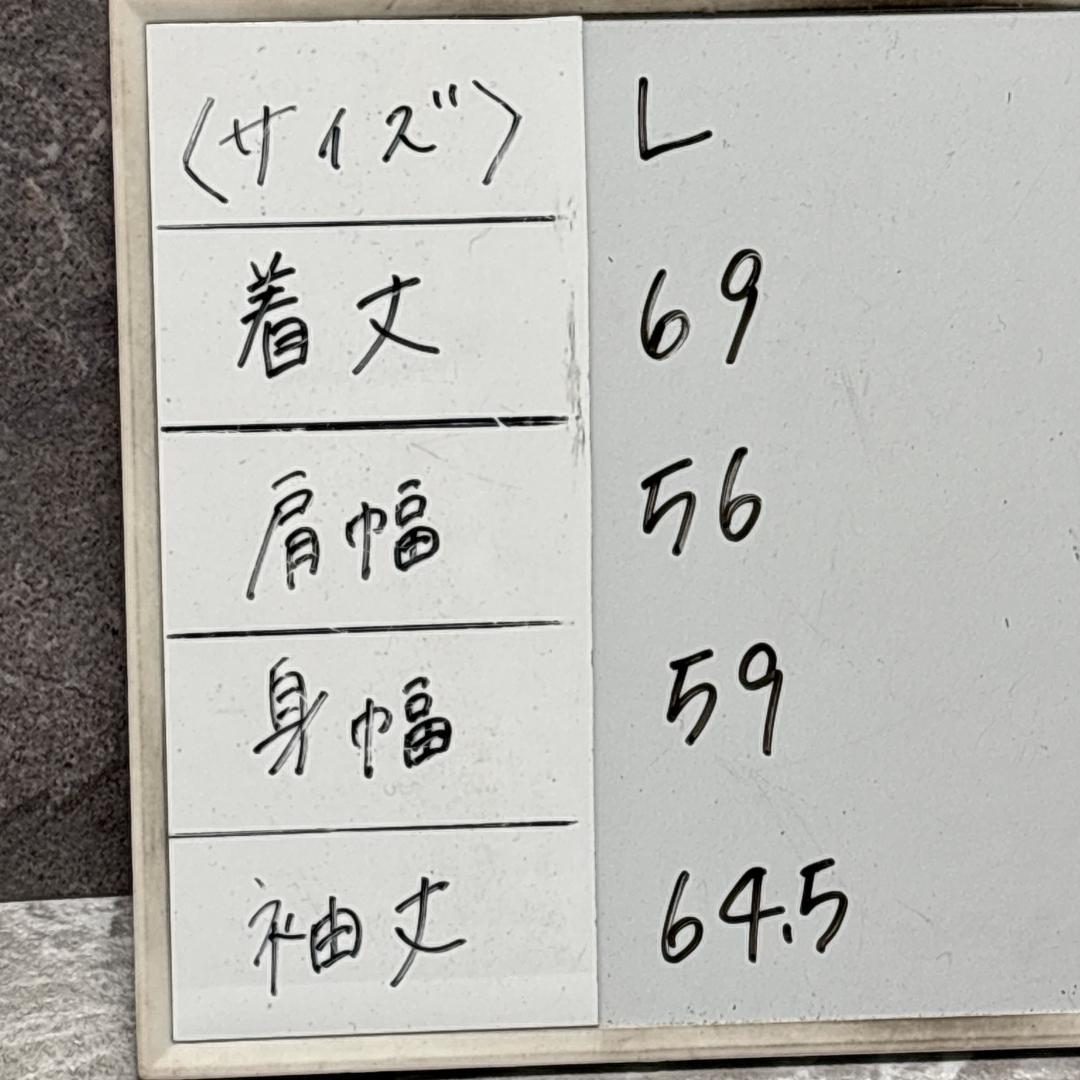 〈サイズ〉 L
着丈 69
肩幅 56
身幅 59
袖丈 64.5